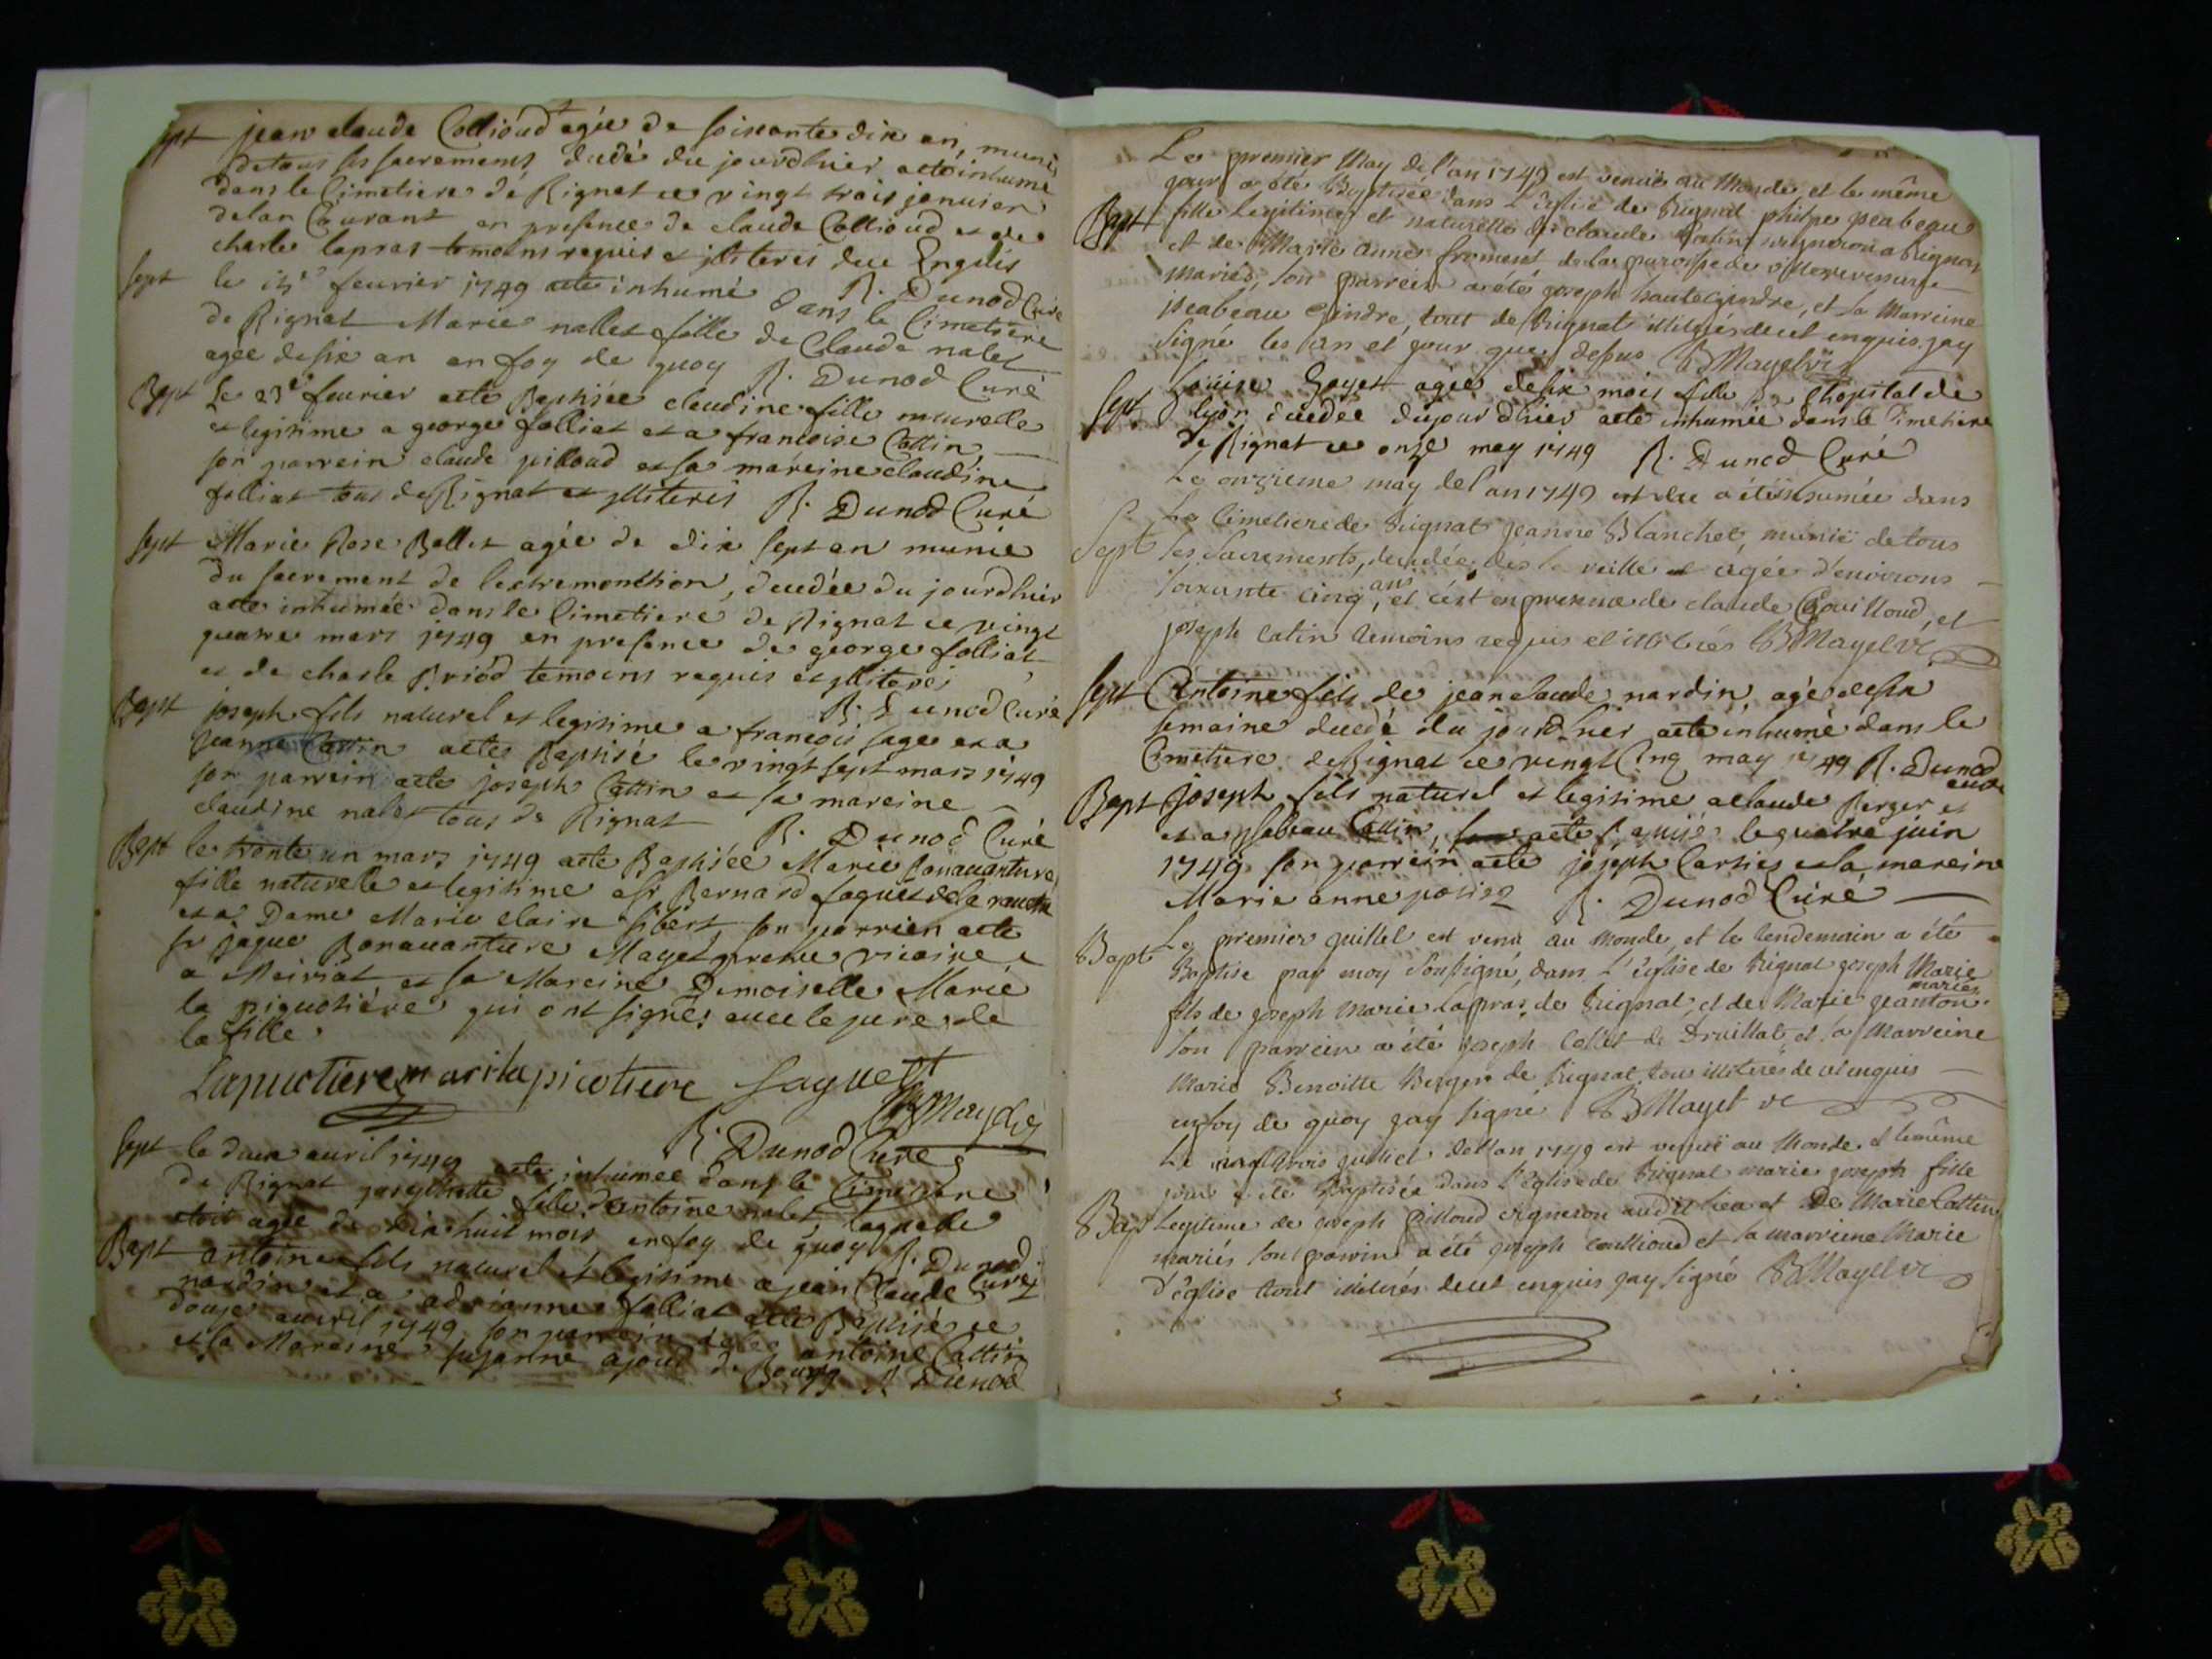 Sept jean claude Collioud agée de soixante dix an, munis
detous ses sacremens decedé du jourdhier aeté inhumé
dans le Cimetiere de Rignat ce vingt trois janvier
delan Courant en presence de claude Collioud et de
charle lapras temoins requis et jlliteres deue Enquis
R. Dunod Curé
Sept le fevrier 1749 aeté inhumé dans le Cimetiere
de Rignat Marie nallet fille de Claude nalet
agée desix an en foy de quoy R. Dunod Curé
Bapt Le 23e fevrier aeté Baptisée claudine fille naturelle
et legitime a george folliat et a francoise Cottin,
son parrein claude pilloud et sa mareine claudine
folliat tous de Rignat et jlliteres R. Dunod Curé
Sept Marie Rose Bollet agée de dix sept an munie
du sacrement de lextremonction, decedée du jourdhier
aeté inhumée dans le Cimetiere de Rignat ce vingt
quatre mars 1749 en presence de george folliat
et de charle Briod temoins requis et jlliteres
R. Dunod Curé
Bapt joseph fils naturel et legitime a francois sage et a
jeanne Cattin aeté Baptisé le vingt sept mars 1749
son parrein aeté joseph Cattin et sa mareine
claudine nalet tous de Rignat
R. Dunod Curé
Bapt le trente un mars 1749 aeté Baptisée Marie Bonavanture
fille naturele et legitime a sr Bernard saguet de la
et a Dame Marie claire sibert son parrien aeté
sr jaque Bonavanture Mayet pretre vicaire
a Meiriat et sa Mareine Demoiselle Marie
la piquotiére qui ont signés avec le pere de
la fille.
Lapicotiere marila picotiere saguet
Mayet
R. Dunod Curé
Sept le deux avril 1749 aeté inhumee dans le Cimetiere
de Rignat josephette fille d'antoine nalet laquelle
etoit agée de dix huit mois enfoy de quoy R. Dunod Curé
Bapt antoine fils naturel et legitime a jean Claude
nardin et a adrianne folliat aeté Baptisé ce
douze avril 1749 son parrein antoine Cattin
et la Mareine suzanne ajoud de Bourg R Dunod
Le premier May de l'an 1749 est venüe au Monde et le même
jour a été Baptisée dans L'église de Rignat philipe peabeau
Bapt fille legitime et naturelle de claude Catin vigneron a Rignat
et de Marie anne froment de la paroisse de villereversure
mariés, son parrein a été joseph hautegindre, et sa Marreine
peabeau gindre, tout de Rignat illiterés deuet enquis jay
signé les an et jour que dessus BMayet vi
Sept Louise Goyet agée desix mois fille de lhopital de
lyon decedée dujour dhier aeté inhumée dans le Cimetiere
de Rignat ce onze may 1749 R. Dunod Curé
Le onzieme may del an 1749 a été inhumée dans
Le Cimetiere de Rignat jeanne Blanchet, münie de tous
Sept les sacrements, decedée dés la veille et agée d'environs
soixante cinq ans, et cést en presence de claude Couilloud, et
joseph catin temoins requis et illiterés BMayet vi
Sept Antoine fils de jean claude nardin, agé desix
semaine decedé du jourdhier aeté inhumé dans le
Cimetiere de Rignat ce vingt Cinq may 1749 R. Dunod
curé
Bapt joseph fils naturel et legitime a claude Berger et
et a ysabeau Cattin, aeté le quatre juin
1749 son parrein aeté joseph Carties et la mareine
Marie anne R. Dunod Curé
Bapt Le premier juillet est venu au Monde, et le lendemain a été
Baptise par moy soussigné, dans L'église de Rignat joseph Marie
fils de joseph marie Lapras de Rignat, et de Marie jeanton mariés
son parrein a été joseph Collet de Druillat et sa Marreine
Marie Benoitte Berger de Rignat tous illiterés deuet enquis
enfoy de quoy jay signé BMayet vi
Le vingt trois juillet de l'an 1749 est venüe au Monde et le même
jour a été Baptisée dans l'église de Rignat marie joseph fille
Bap Legitime de joseph Pilloud vigneron audit lieu et De Marie Cattin
mariés son parrein a été joseph coullioud et sa marreine Marie
d'église tout illiterés deuet enquis jay signé BMayet vi